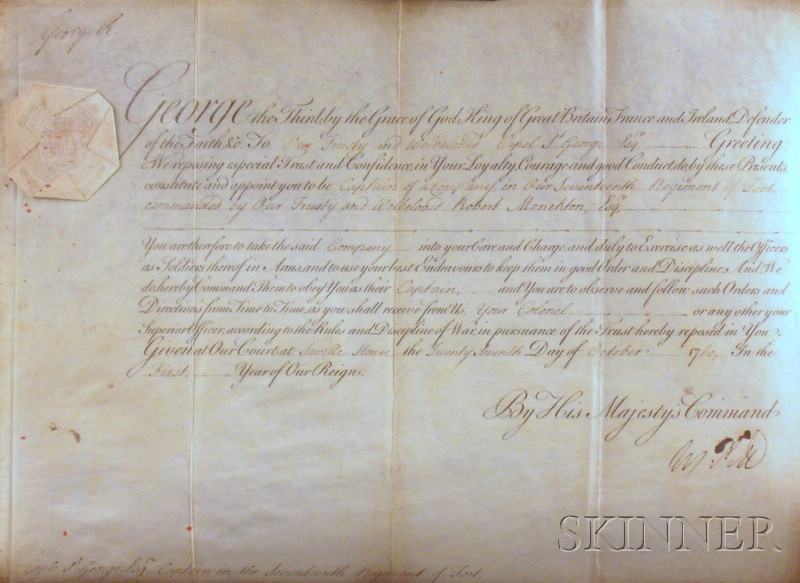 George R.
George the Third, by the Grace of God, King of Great Britain France and Ireland, Defender
of the Faith &c. To Our Trusty and Welbeloved Capel St. George Esqr. Greeting:
We reposing especial Trust and Confidence, in Your Loyalty, Courage and good Conduct, do by these Presents
constitute and appoint you to be Captain of a Company in Our Seventeenth Regiment of Foot
commanded by Our Trusty and Welbeloved Robert Monckton, Esqr.
You are therefore to take the said Company into your Care and Charge, and duly to Exercise as well the Officers
as Soldiers thereof in Arms, and to use your best Endeavours to keep them in good Order and Discipline; And We
do hereby Command Them to obey You as their Captain, and You are to observe and follow such Orders and
Directions from Time to Time, as you shall receive from Us, Your Colonel or any other your
Superior Officer, according to the Rules and Discipline of War, in pursuance of the Trust hereby reposed in You.
Given at Our Court at Saville House the Twenty Seventh Day of October 1760, In the
First Year of Our Reign.
By His Majesty's Command
W Pitt
St. George Esqr. Captain in the Seventeenth Regiment of Foot.
SKINNER